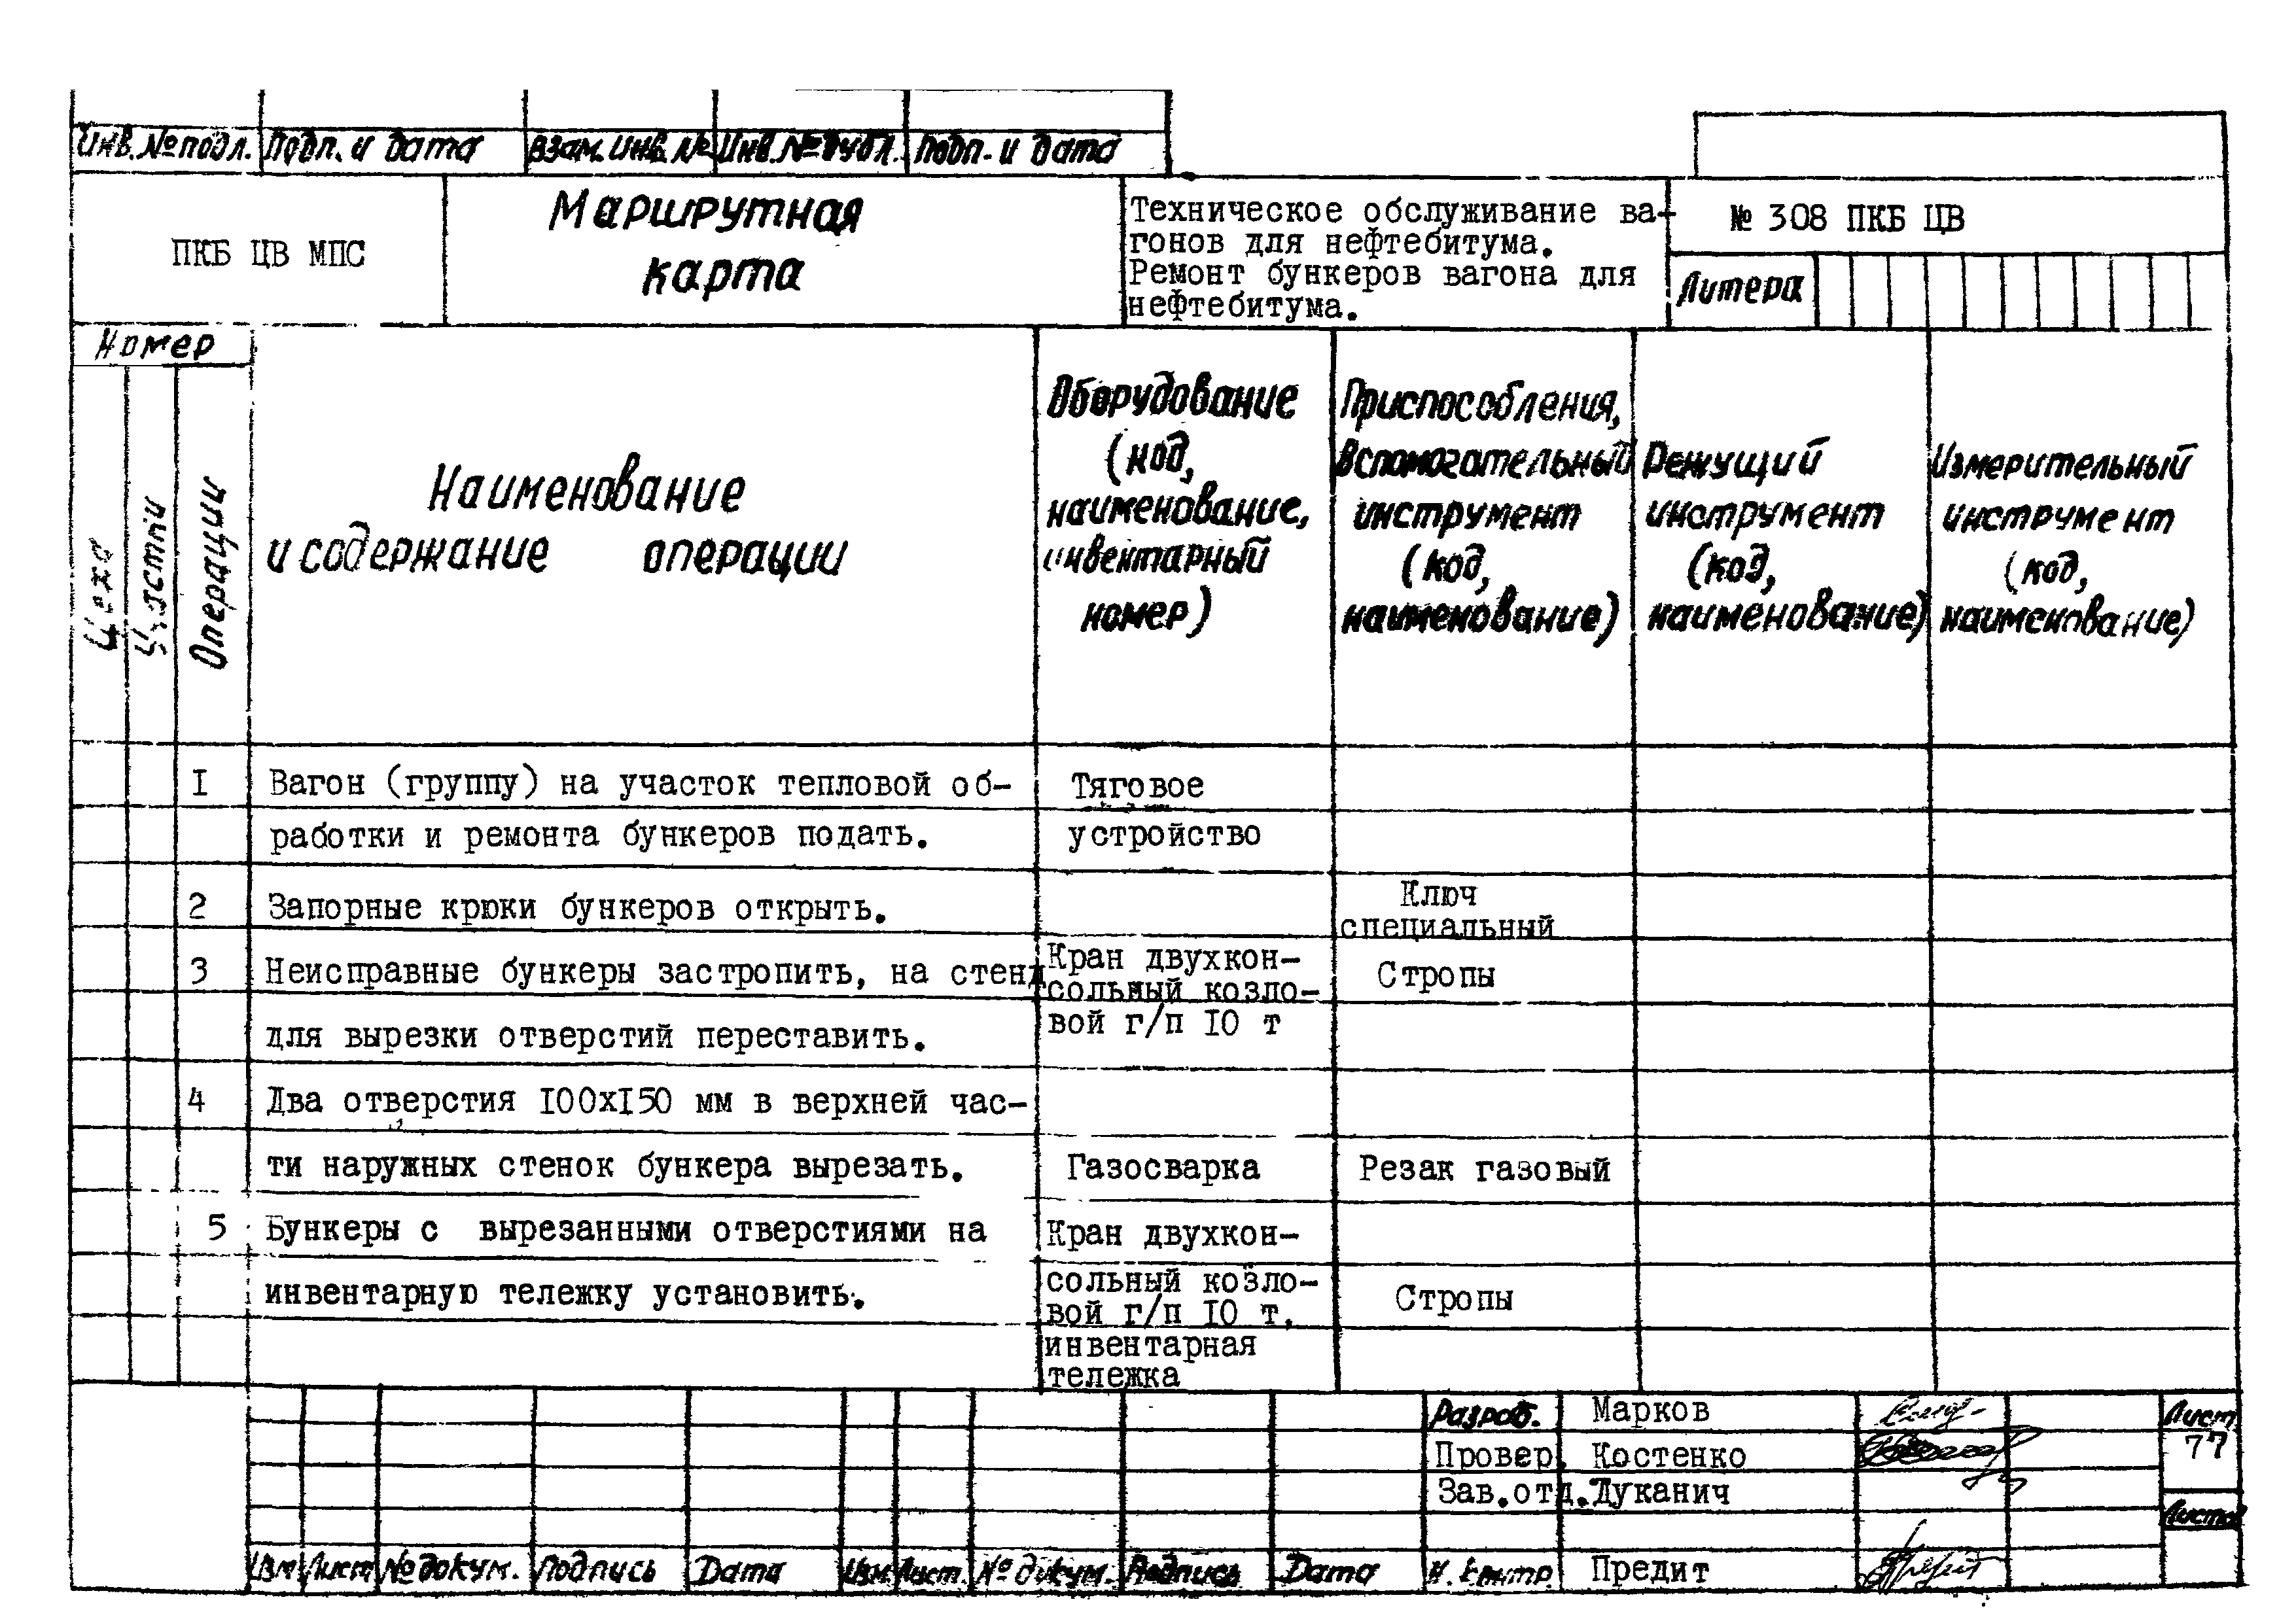 Инв. № подл. Подп. и дата Взам. Инв. № Инв. № дубл. Подп. и дата
ПКБ ЦВ МПС
Маршрутная
карта
Техническое обслуживание ва-
гонов для нефтебитума.
Ремонт бункеров вагона для
нефтебитума.
№ 308 ПКБ ЦВ
Литера
Номер
Цеха
Участка
Операции
Наименование
и содержание операции
Оборудование
(код,
наименование,
инвентарный
номер)
Приспособления,
Вспомогательный
инструмент
(код,
наименование)
Режущий
инструмент
(код,
наименование)
Измерительный
инструмент
(код,
наименование)
I Вагон (группу) на участок тепловой об- Тяговое
работки и ремонта бункеров подать. устройство
2 Запорные крюки бункеров открыть. Ключ
специальный
3 Неисправные бункеры застропить, на стенд Кран двухкон- Стропы
сольный козло-
для вырезки отверстий переставить. вой г/п IO т
4 Два отверстия IOOxI50 мм в верхней час-
ти наружных стенок бункера вырезать. Газосварка Резак газовый
5 Бункеры с вырезанными отверстиями на Кран двухкон-
инвентарную тележку установить. сольный козло- Стропы
вой г/п IO т,
инвентарная
тележка
Разраб. Марков Лист
Провер. Костенко 77
Зав.отд. Луканич
Листов
Изм Лист № докум. Подпись Дата Изм Лист. № докум. Подпись Дата Н. контр. Предит